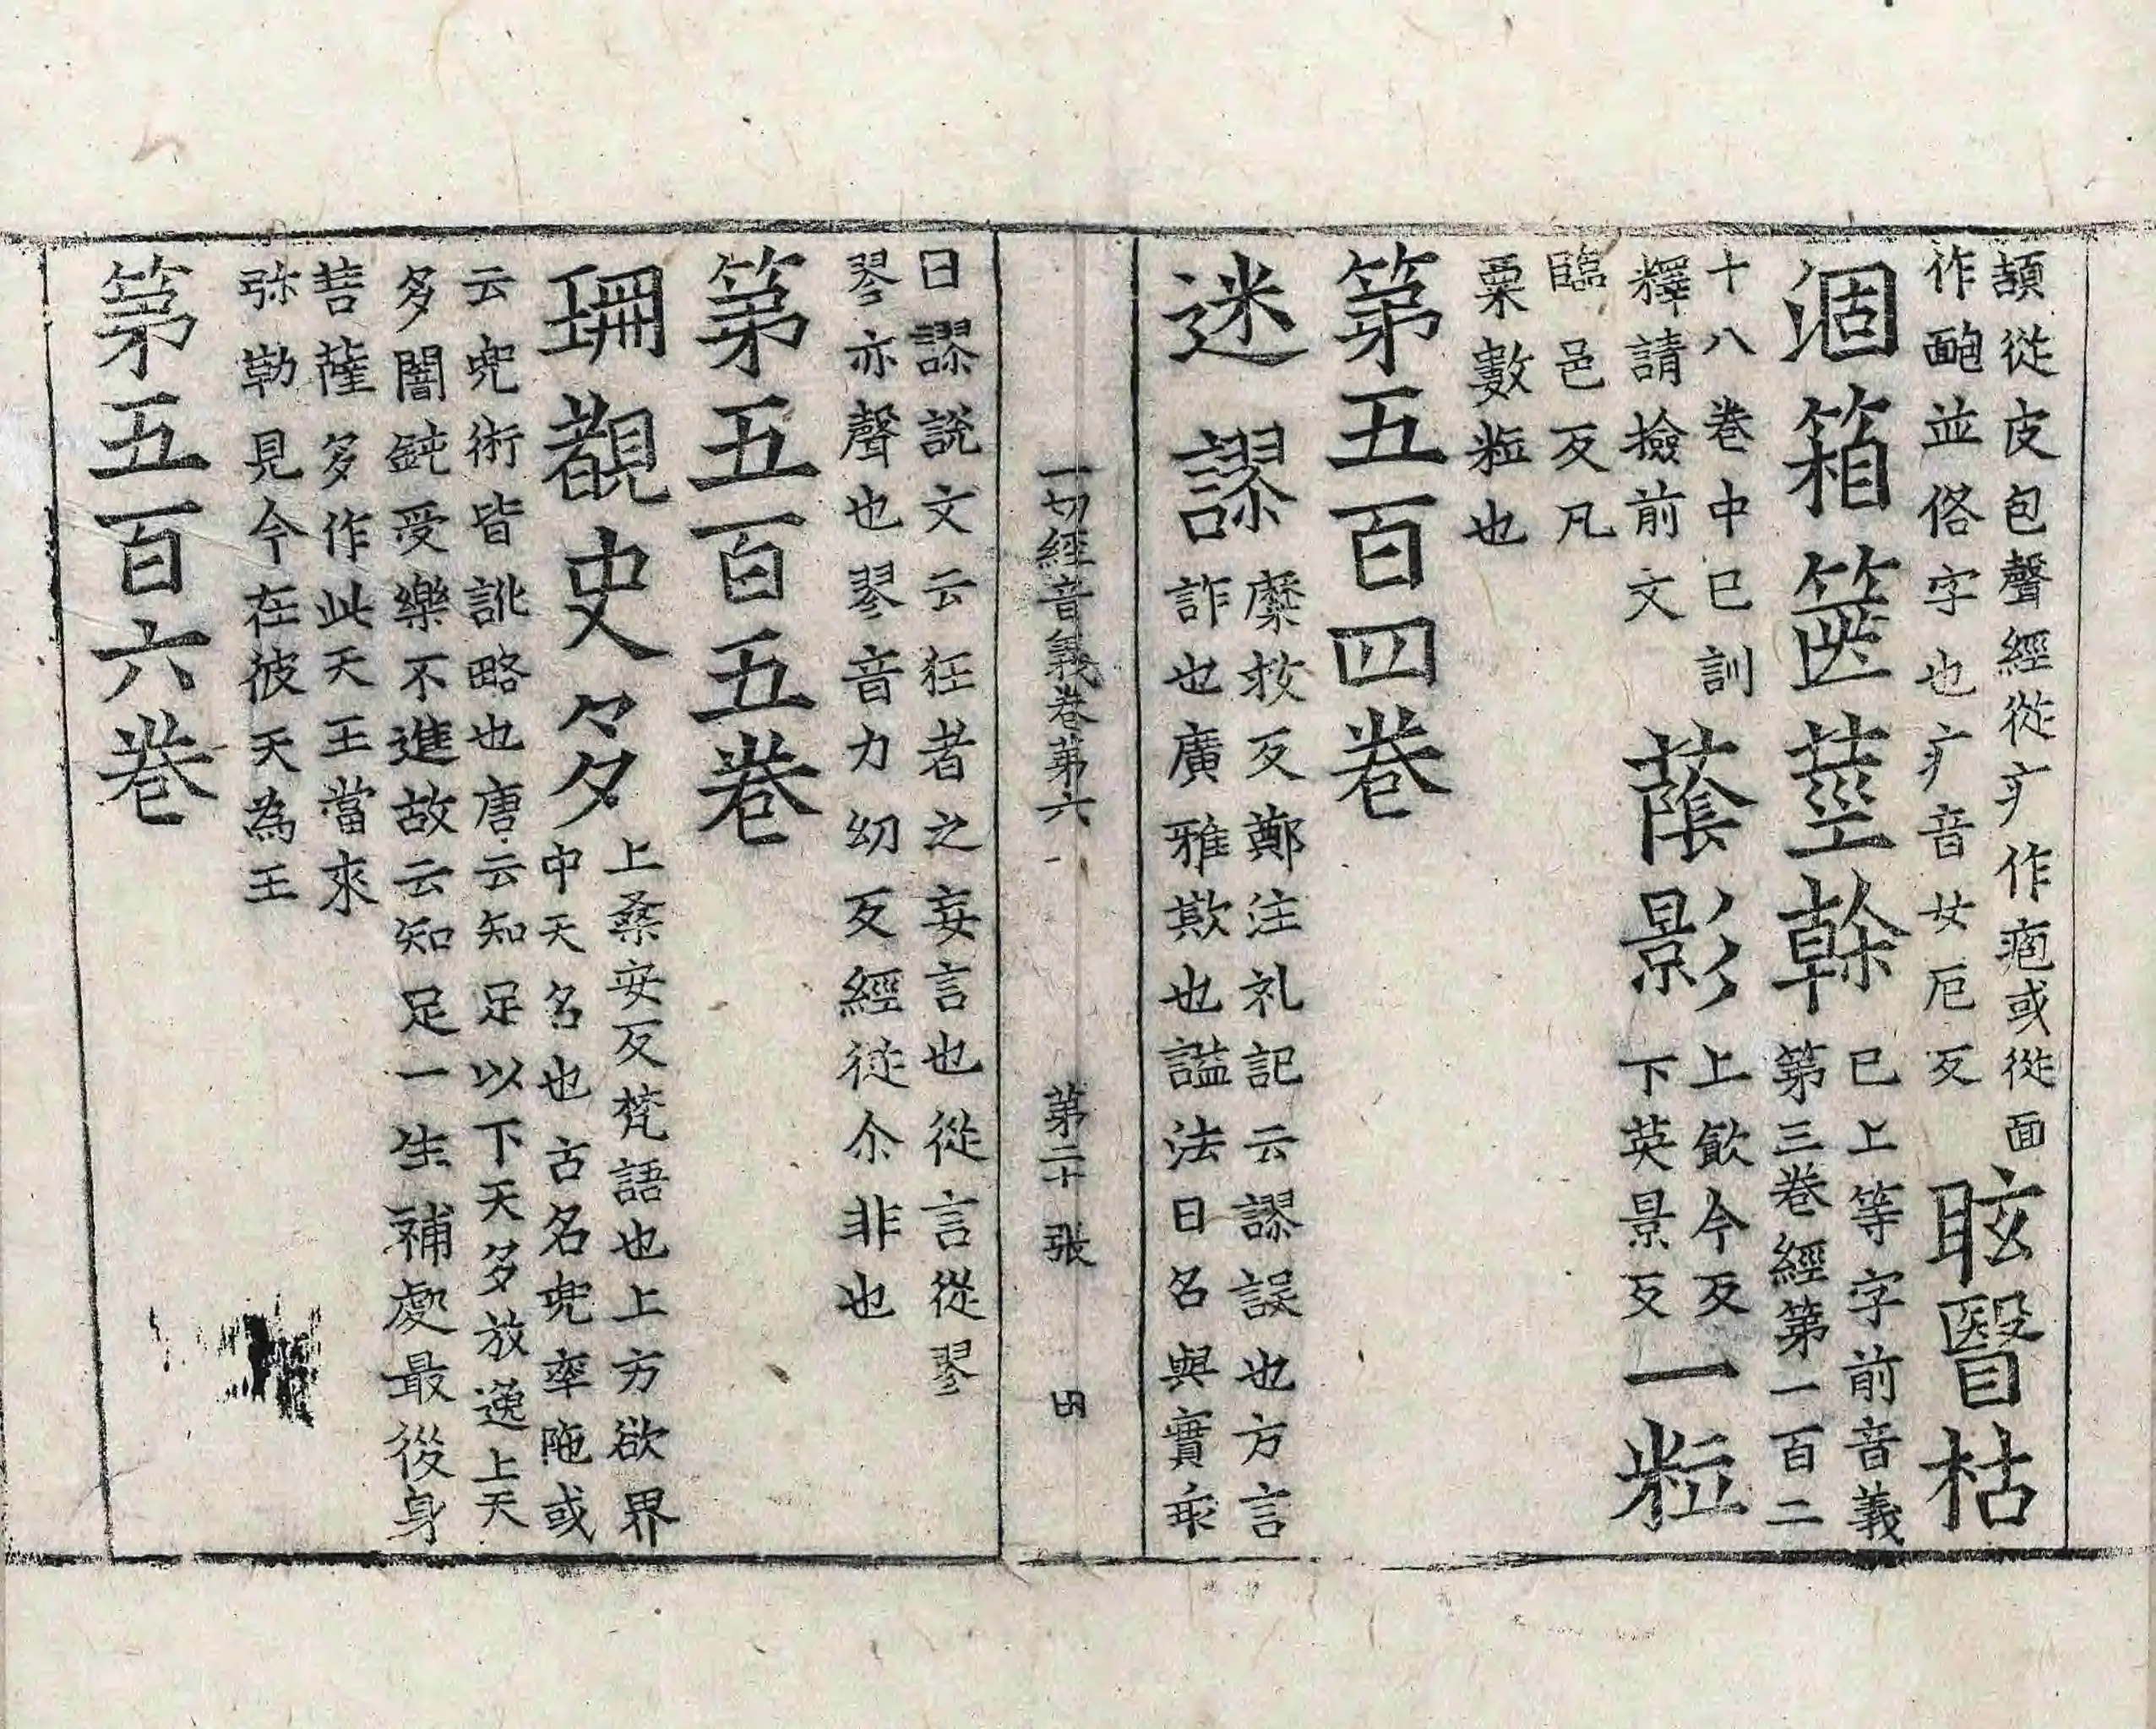 頿從皮包聲經從疒作疱或從面
作皰並俗字也疒音女厄反
眩瞖枯
涸箱篋莖𠏉
已上等字前音義
第三卷經第一百二
十八卷中已訓
釋請撿前文
蔭影
上飲今反
下英景反
一粒
臨邑反凡
粟數粒也
第五百四卷
迷謬
糜救反鄭注礼記云謬誤也方言
詐也廣雅欺也謚法曰名與實乖
一切經音義卷第六 第二十張 田
曰謬說文云狂者之妄言也從言從翏
翏亦聲也翏音力幼反經從尒非也
第五百五卷
珊覩史々多
上桑安反梵語也上方欲界
中天名也古名兜率陁或
云兜術皆訛略也唐云知足以下天多放逸上天
多闇鈍受樂不進故云知足一生補處最後身
菩薩多作此天王當來
弥勒見今在彼天為王
第五百六卷